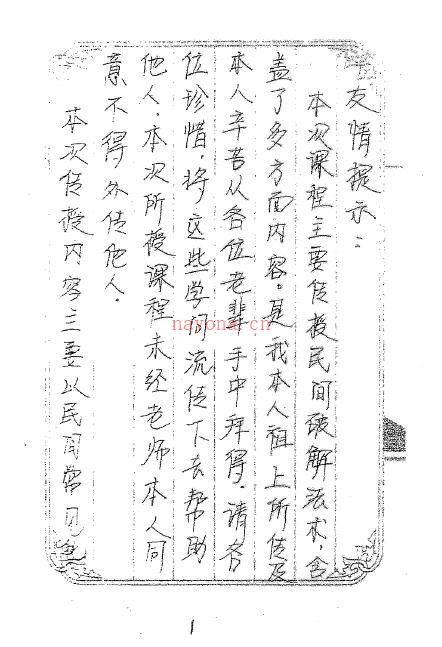 友情提示：
本次课程主要传授民间破解法术，含
盖了多方面内容。是我本人祖上所传及
本人辛苦从各位老辈手中拜得。请各
位珍惜。将这些学问流传下去帮助
他人。本次所授课程未经老师本人同
意不得外传他人。
本次传授内容主要以民间常见
nayona.cn
1